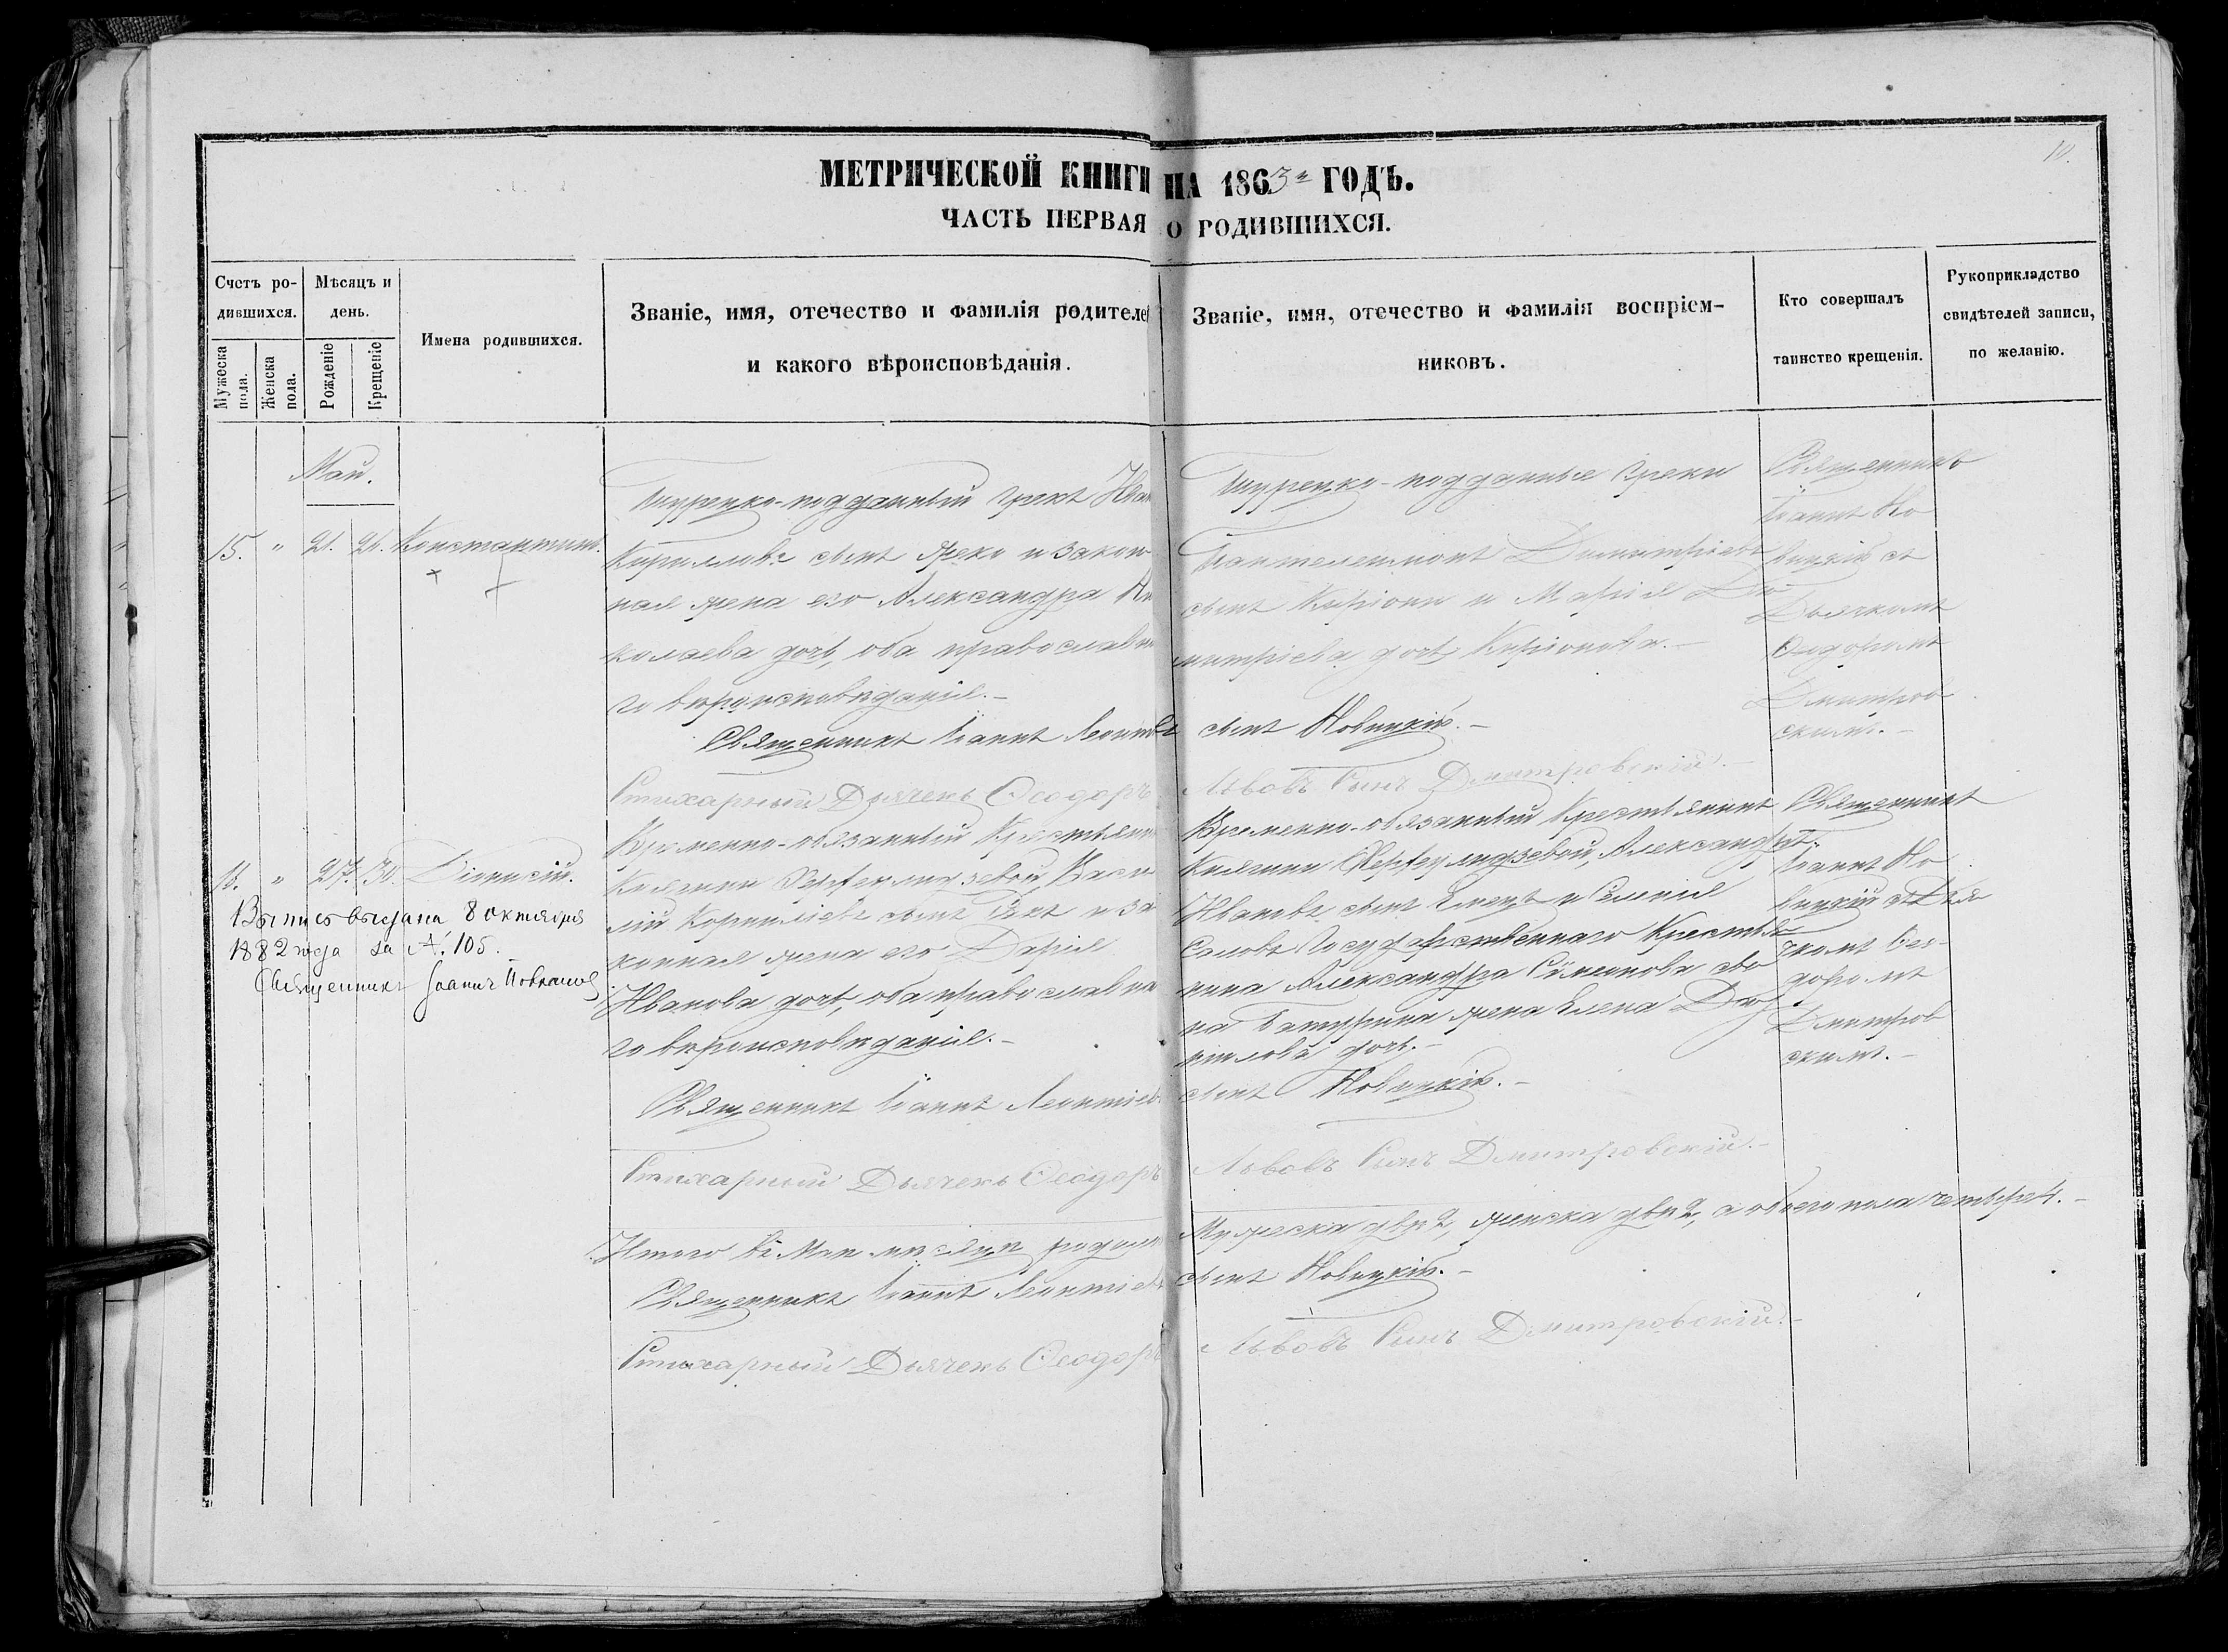 10.
МЕТРИЧЕСКОЙ КНИГИ НА 1863й ГОДЪ.
ЧАСТЬ ПЕРВАЯ О РОДИВШИХСЯ.
Счетъ ро-
дившихся.
Мужеска пола.
Женска пола.
Мѣсяцъ и
день.
Рожденіе
Крещеніе
Имена родившихся.
Званіе, имя, отечество и фамилія родителей
и какого вѣроисповѣданія.
Званіе, имя, отечество и фамилія воспріем-
никовъ.
Кто совершалъ
таинство крещенія.
Рукоприкладство
свидѣтелей записи,
по желанію.
Май.
15. " 21. 24. Константинъ.
Турецко-подданный Грекъ Иван
Кирилловъ сынъ и закон
ная жена его Александра Ни
колаева дочь, оба православна
го вѣроисповѣданія.-
Турецко-подданные Греки
Пантелеимонъ Димитріевъ
сынъ и Марія Ди
митріева дочь
Священникъ
Іоаннъ Но
вицкій съ
Дьячкомъ
Ѳеодоромъ
Дмитров
скимъ.-
Священникъ Іоаннъ Леонтіевъ сынъ Новицкій.-
Стихарный Дьячекъ Ѳеодоръ Львовъ Сынъ Дмитровскій.-
" 27. 30. Діонисій.
Выпись выдана 8 октября
1882 года за №. 105.
Священникъ Іоаннъ
Временно-обязанный Крестьянинъ
Княгини Васи
лій Корнилiевъ сынъ и за
конная жена его Дарія
Иванова дочь, оба православна
го вѣроисповѣданія.-
Временно-обязанный Крестьянинъ
Княгини Александръ
Ивановъ сынъ и
Государственнаго Крестья
нина Александра Сименова сы
на жена Елена Да
ніилова дочь.-
Священникъ
Іоаннъ Но
вицкій съ Дья
чкомъ Ѳео-
доромъ
Дмитров
скимъ.-
Священникъ Іоаннъ Леонтіевъ сынъ Новицкій.-
Стихарный Дьячекъ Ѳеодоръ Львовъ Сынъ Дмитровскій.-
Итого въ Маѣ мѣсяцѣ родилось Мужеска двѣ 2, женска двѣ 2, а обоего пола четыре 4.-
Священникъ Іоаннъ Леонтіевъ сынъ Новицкій.-
Стихарный Дьячекъ Ѳеодоръ Львовъ Сынъ Дмитровскій.-